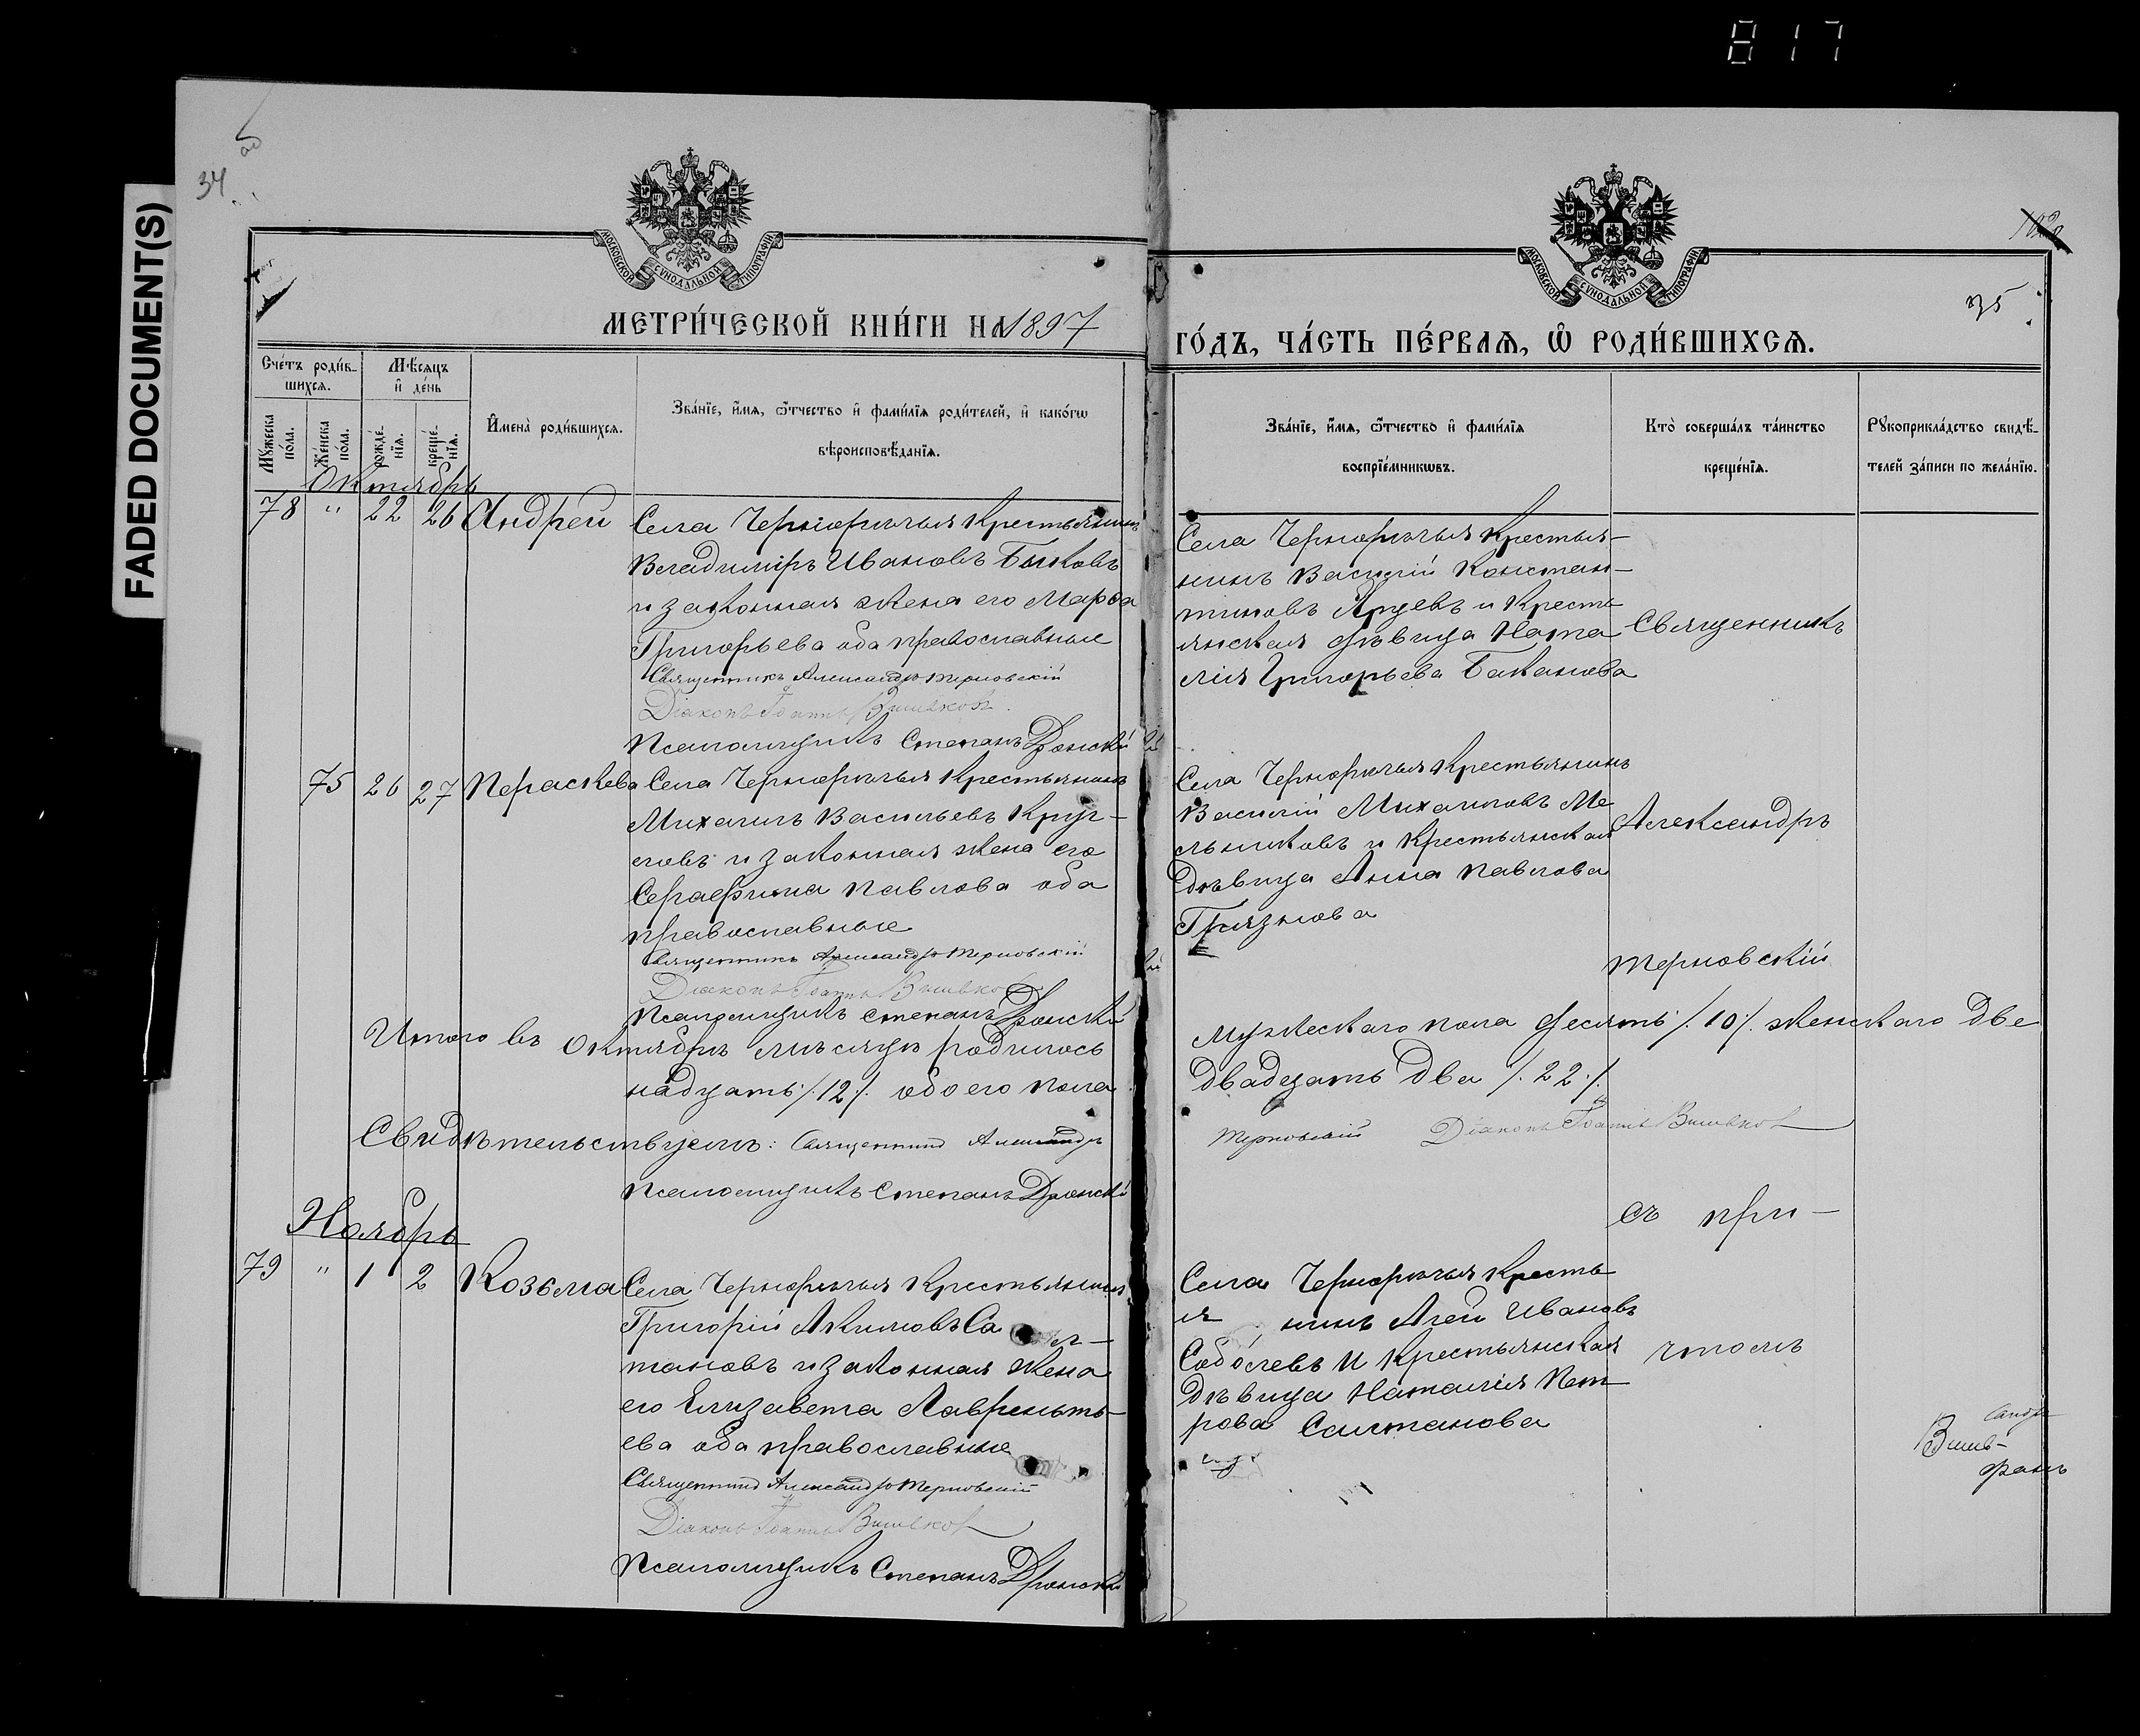 817
FADED DOCUMENT(S)
34
35
МОСКОВСКОЙ СУНОДАЛЬНОЙ ТИПОГРАФІИ
МОСКОВСКОЙ СУНОДАЛЬНОЙ ТИПОГРАФІИ
МЕТРИ́ЧЕСКОЙ КНИ́ГИ НА 1897
ГО́ДЪ, ЧА́СТЬ ПЕ́РВАѦ, Ѽ РОДИ́ВШИХСѦ.
Сче́тъ роди́в-
шихсѧ.
Мѣ́сѧцъ
и҆ де́нь
Мꙋ́жеска по́ла.
Же́нска по́ла.
рожде́-нїѧ.
креще́-нїѧ.
И҆мена̀ роди́вшихсѧ.
Зва́нїе, и҆́мѧ, ѻ҆́тчество и҆ фами́лїѧ роди́телей, и҆ како́гѡ
вѣроисповѣ́данїѧ.
Зва́нїе, и҆́мѧ, ѻ҆́тчество и҆ фами́лїѧ
воспрїе́мникѡвъ.
Кто̀ соверша́лъ та́инство
креще́нїѧ.
Рꙋкоприкла́дство свидѣ́-
телей за́писи по жела́нїю.
Октябрь
78 " 22 26 Андрей
Села Черноречья Крестьянинъ
Владиміръ Ивановъ Быковъ
и законная жена его Марфа
Григорьева оба православные
Священникъ Александръ Терновскій
Діаконъ Іоаннъ
Псаломщикъ Степанъ
Села Черноречья Крестья-
нинъ Василій Констан-
тиновъ и Кресть
янская дѣвица Ната
лія Григорьева Баканова
Священникъ
75 26 27 Пераскева
Села Черноречья Крестьянинъ
Михаилъ Васильевъ Круг-
ловъ и законная жена его
Серафима Павлова оба
православные
Священникъ Александръ Терновскій
Діаконъ Іоаннъ
Псаломщикъ Степанъ
Села Черноречья Крестьянинъ
Василій Михаиловъ Ме
льниковъ и Крестьянская
дѣвица Анна Павлова
Грязнова
Александръ
Терновскій
Итого въ Октябрѣ мѣсяцѣ родилось
мужескаго пола десять /.10/. женскаго две
надцать /.12/. обоего пола
двадцать два /.22/.
Свидѣтельствуемъ: Священникъ Александръ
Терновскій Діаконъ Іоаннъ
Псаломщикъ Степанъ
съ при-
Ноябрь
79 " 1 2 Козьма
Села Черноречья Крестьянинъ
Григорій Акимовъ Са
тановъ и законная жена
его Елизавета Лавренть-
ева оба православные
Священникъ Александръ Терновскій
Діаконъ Іоаннъ
Псаломщикъ Степанъ
Села Черноречья Кресть
я нинъ Агей Ивановъ
Соболевъ и Крестьянская
дѣвица Наталія Пет
рова Салтанова
чтомъ